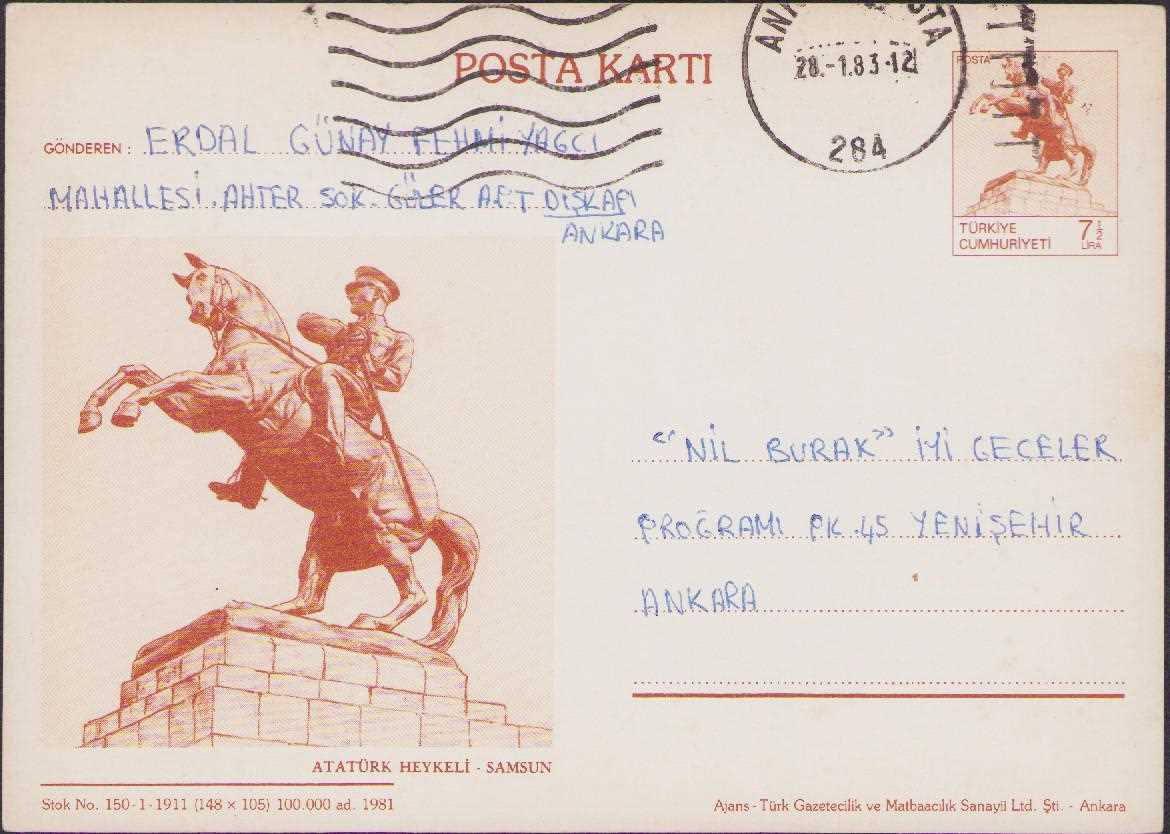 POSTA KARTI
ANKARA POSTA
28.-1.83-12
284
POSTA
TÜRKİYE
CUMHURİYETİ
7 1/2
LİRA
GÖNDEREN : ERDAL GÜNAY FEHMİ YAGCI
MAHALLESİ. AHTER SOK. GÜLER APT DIŞKAPI
ANKARA
"NİL BURAK" İYİ GECELER
PROĞRAMI PK.45 YENİŞEHİR
ANKARA
ATATÜRK HEYKELİ - SAMSUN
Stok No. 150-1-1911 (148 × 105) 100.000 ad. 1981
Ajans-Türk Gazetecilik ve Matbaacılık Sanayii Ltd. Şti. - Ankara